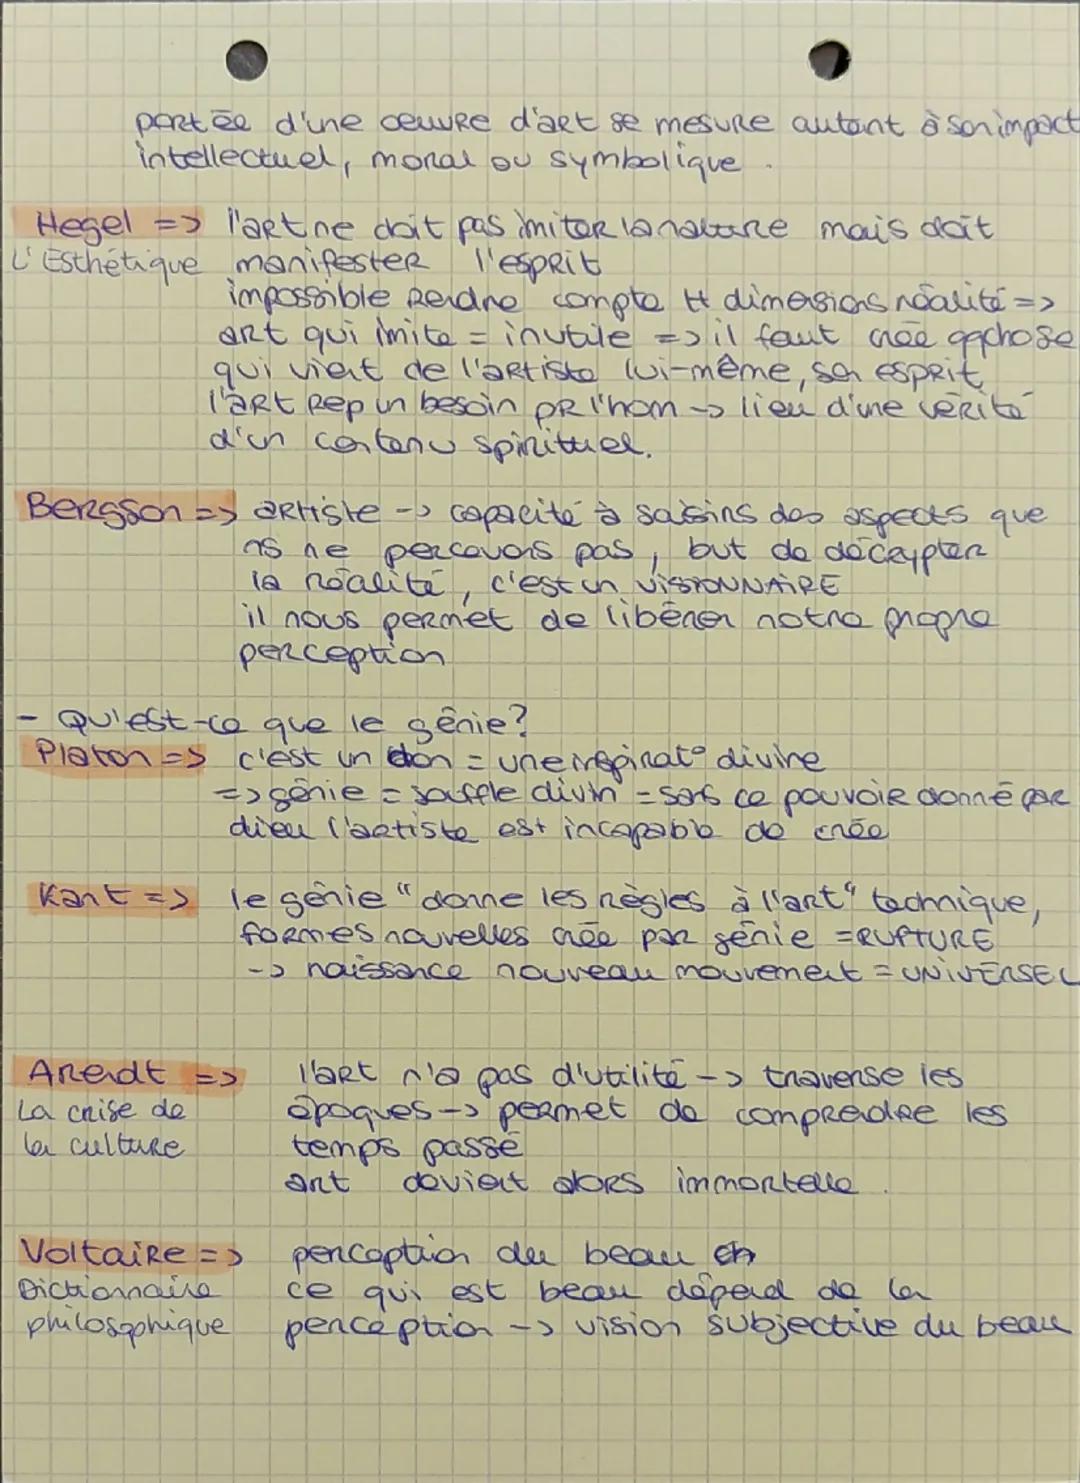 portée d'une œuvre d'art se mesure autant à son impact
intellectuel, moral ou symbolique .
Hegel => l'art ne doit pas imiter la nature mais doit
L'Esthétique manifester l'esprit
impossible rendre compte tt dimensions réalité =>
art qui imite = inutile => il faut créé qqchose
qui vient de l'artiste lui-même, son esprit
l'art rep un besoin pr l'hom -> lieu d'une vérité
d'un contenu spirituel.
Bergson => artiste -> capacité à saisins des aspects que
ns ne percevons pas, but de décrypter
la réalité, c'est un VISIONNAIRE
il nous permet de libérer notre propre
perception
- Qu'est-ce que le génie?
Platon => c'est un don = une inspirat° divine
=> génie = souffle divin = sans ce pouvoir donné par
dieu l'artiste est incapable de créé
Kant => le génie "donne les règles à l'art" technique,
formes nouvelles créé par génie = RUPTURE
-> naissance nouveau mouvement = UNIVERSEL
Arendt => l'art n'a pas d'utilité -> traverse les
La crise de époques -> permet de comprendre les
la culture temps passé
art devient alors immortelle .
Voltaire => perception du beau
Dictionnaire ce qui est beau dépend de la
philosophique perception -> vision subjective du beau